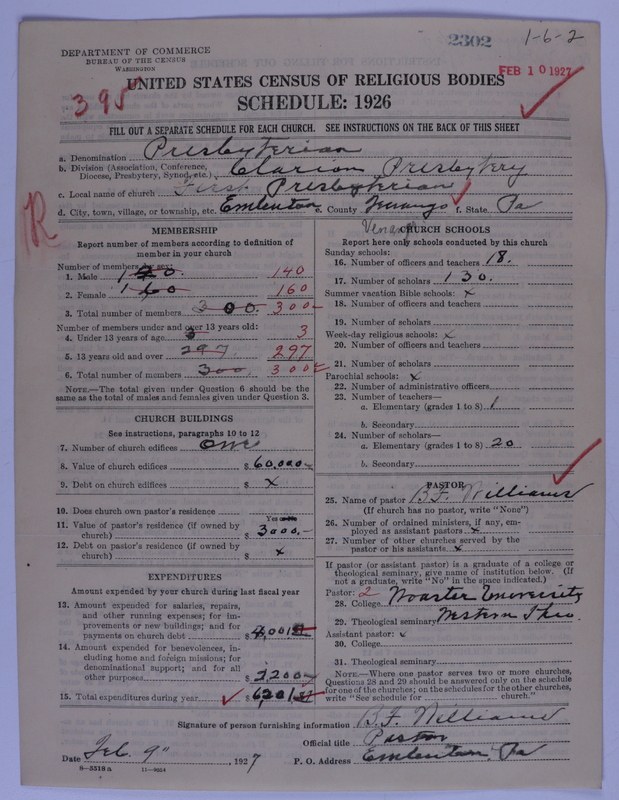 2302
1-6-2
DEPARTMENT OF COMMERCE
BUREAU OF THE CENSUS
WASHINGTON
FEB 10 1927
395
UNITED STATES CENSUS OF RELIGIOUS BODIES
SCHEDULE: 1926
FILL OUT A SEPARATE SCHEDULE FOR EACH CHURCH. SEE INSTRUCTIONS ON THE BACK OF THIS SHEET
a. Denomination Presbyterian
b. Division (Association, Conference, Diocese, Presbytery, Synod, etc.) Clarion Presbytery
c. Local name of church First Presbyterian
d. City, town, village, or township, etc. Emlenton e. County Venango f. State Pa
R
Venango
MEMBERSHIP
Report number of members according to definition of
member in your church
Number of members by sex:
1. Male 140 140
2. Female 160 160
3. Total number of members 300 300
Number of members under and over 13 years old:
4. Under 13 years of age 3 3
5. 13 years old and over 297 297
6. Total number of members 300 300
NOTE.—The total given under Question 6 should be the
same as the total of males and females given under Question 3.
CHURCH BUILDINGS
See instructions, paragraphs 10 to 12
7. Number of church edifices one
8. Value of church edifices $ 60,000
9. Debt on church edifices $ x
10. Does church own pastor's residence Yes or No
11. Value of pastor's residence (if owned by
church) $ 3000,-
12. Debt on pastor's residence (if owned by
church) $ x
EXPENDITURES
Amount expended by your church during last fiscal year
13. Amount expended for salaries, repairs,
and other running expenses; for im-
provements or new buildings; and for
payments on church debt $
14. Amount expended for benevolences, in-
cluding home and foreign missions; for
denominational support; and for all
other purposes $
15. Total expenditures during year $
CHURCH SCHOOLS
Report here only schools conducted by this church
Sunday schools:
16. Number of officers and teachers 18.
17. Number of scholars 130.
Summer vacation Bible schools: x
18. Number of officers and teachers
19. Number of scholars
Week-day religious schools: x
20. Number of officers and teachers
21. Number of scholars
Parochial schools: x
22. Number of administrative officers
23. Number of teachers—
a. Elementary (grades 1 to 8) 1
b. Secondary
24. Number of scholars—
a. Elementary (grades 1 to 8) 20
b. Secondary
PASTOR
25. Name of pastor B.F. Williams
(If church has no pastor, write "None")
26. Number of ordained ministers, if any, em-
ployed as assistant pastors x
27. Number of other churches served by the
pastor or his assistants x
If pastor (or assistant pastor) is a graduate of a college or
theological seminary, give name of institution below. (If
not a graduate, write "No" in the space indicated.)
Pastor: 2
28. College Wooster University
29. Theological seminary Western Theo.
Assistant pastor: x
30. College
31. Theological seminary
NOTE.—Where one pastor serves two or more churches,
Questions 28 and 29 should be answered only on the schedule
for one of the churches; on the schedules for the other churches,
write "See schedule for ............ church."
Signature of person furnishing information B.F. Williams
Official title Pastor
Date Feb. 9", 1927 P. O. Address Emlenton, Pa
8-5518 a 11-9054